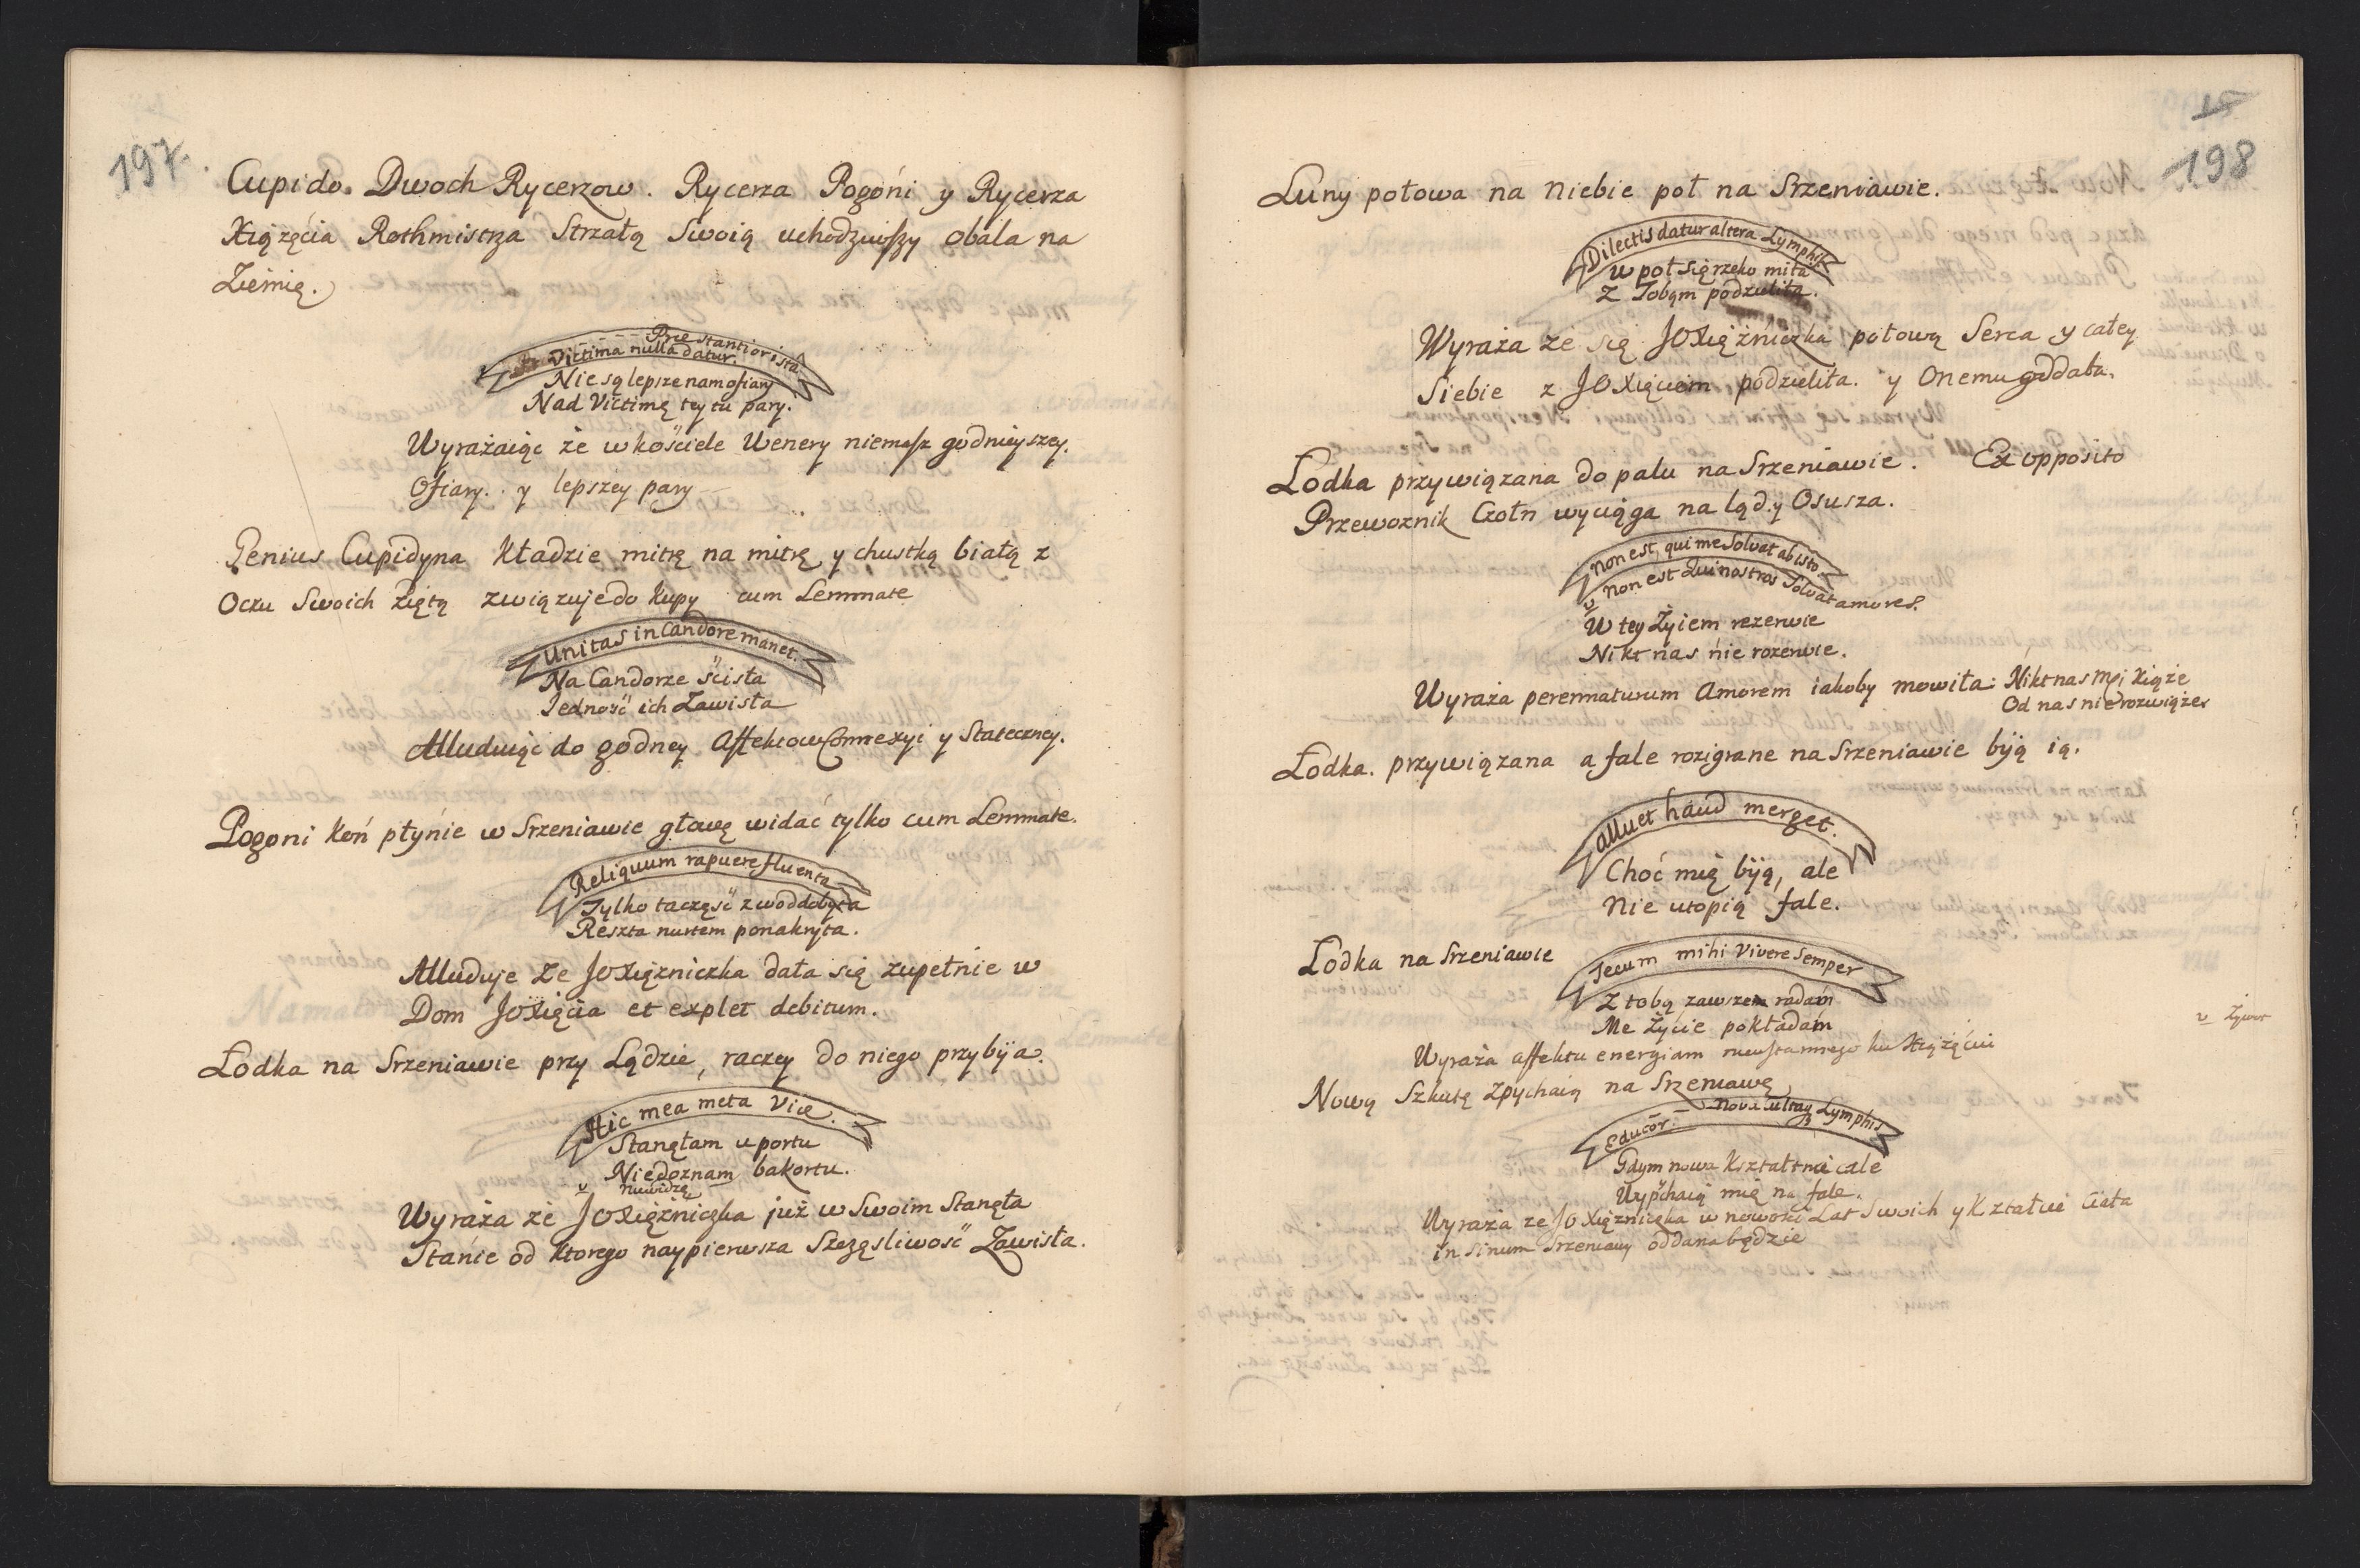 197.
Cupido. Dwoch Rycerzow. Rycerza Pogoni y Rycerza
Xiążęcia Rothmistrza Strzałą Swoią uchodziwszy obala na
Ziemię.
Præstantior ista
Victima nulla datur.
Nie są lepsze nam ofiary
Nad Victimę tey tu pary.
Wyrażaiąc że w kościele Wenery niemasz godnieyszey.
Ofiary. y lepszey pary
Genius Cupidyna kładzie mitrę na mitrę y chustką białą z
Oczu Swoich zdiętą związuje do kupy cum Lemmate
Unitas in Candore manet.
Na Candorze ścisła
Jedność ich Zawisła
Alluduiąc do godney affektow Connexyi y Stateczney.
Pogoni koń płynie w Srzeniawie głowę widać tylko cum Lemmate.
Reliquum rapuere fluenta
Tylko ta część z wod dobyta
Reszta nurtem ponakryta.
Alluduje że JOXiężniczka dała się zupełnie w
Dom JOXięcia et explet debitum.
Lodka na Srzeniawie przy Lądzie, raczey do niego przybija.
Hic mea meta viæ.
Stanęłam u portu
Niedoznam bakortu.
v niewidzę
Wyraża że JOXiężniczka już w Swoim Stanęła
Stanie od ktorego naypierwsza Szczęśliwość Zawisła.
198
Luny połowa na Niebie poł na Srzeniawie.
Dilectis datur altera Lymphis
w poł się rzeko miła
Z Tobąm podzieliła.
Wyraża że się JOXiężniczka połową Serca y całey
Siebie z JOXięciem podzieliła. y Onemu oddała.
Lodka przywiązana do palu na Srzeniawie. Ex opposito
Przewoznik Czołn wyciąga na ląd y Osusza.
Non est, qui me Solvat ab isto
v Non est Qui nostros Solvat amores.
W tey Żyiem rezerwie
Nikt nas nie rozerwie.
Wyraża perennaturum Amorem iakoby mowiła: Nikt nas Mći Xiąże
Od nas nie rozwiąże.
Lodka. przywiązana a fale rozigrane na Srzeniawie biją ią.
Alluet haud merget.
Choć mię biją, ale
Nie utopią fale.
Lodka na Srzeniawie
Tecum mihi Vivere Semper
Z tobą zawszem radam
Me Życie pokładam
v Żywot
Wyraża affektu energiam nieustannego ku Xiążęciu
Nową Szkutę zpychaią na Srzeniawę
Educor. Nova
Lymphis
Gdym nowa Kształtnie cale
Wypchaią mię na fale.
Wyraża ze JOXiężniczka w nowości Lat Swoich y Kształcie Ciała
in Sinum Srzeniawy oddana będzie